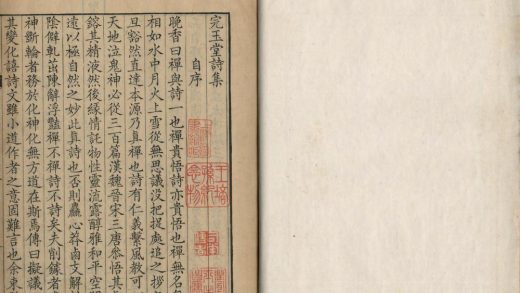 完玉堂詩集
自序
晚香曰禪與詩一也禪貴悟詩亦貴悟也禪無名
相如水中月火上雪從無思議沒把捉處追之拶
旦豁然直達本源乃真禪也詩有仁義繫風教可
天地泣鬼神必從三百篇漢魏晉宋三唐參悟其
鎔其精液然後緣情託物性靈流露醇雅和平空
遠以極自然之妙此真詩也否則麤心莽鹵文解
陰僻軋茁陳解浮豔禪不禪詩不詩矣夫削鐻者
神斲輪者務於化神化無方道在斯焉傳曰擬議
其變化嘻詩文雖小道作者之意固難言也余東
王培孫紀念物